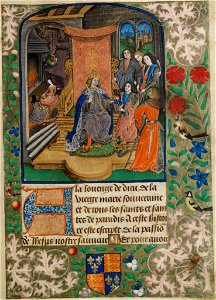 A la louenge de dieu et de la
vierge marie souveraine
et de tous les saints et sain
tes de paradis a este
ce est escript de la passio
de Jesus nostre sauveur Et pour avoir